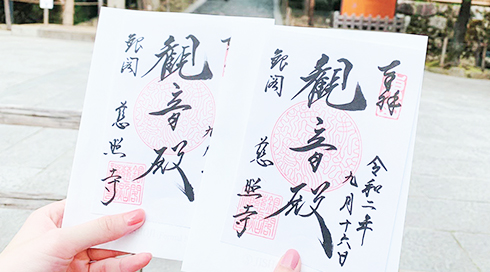 奉拝
令和二年
九月十六日
観音殿
銀閣
慈照寺
九月
観音殿
銀閣
慈照寺